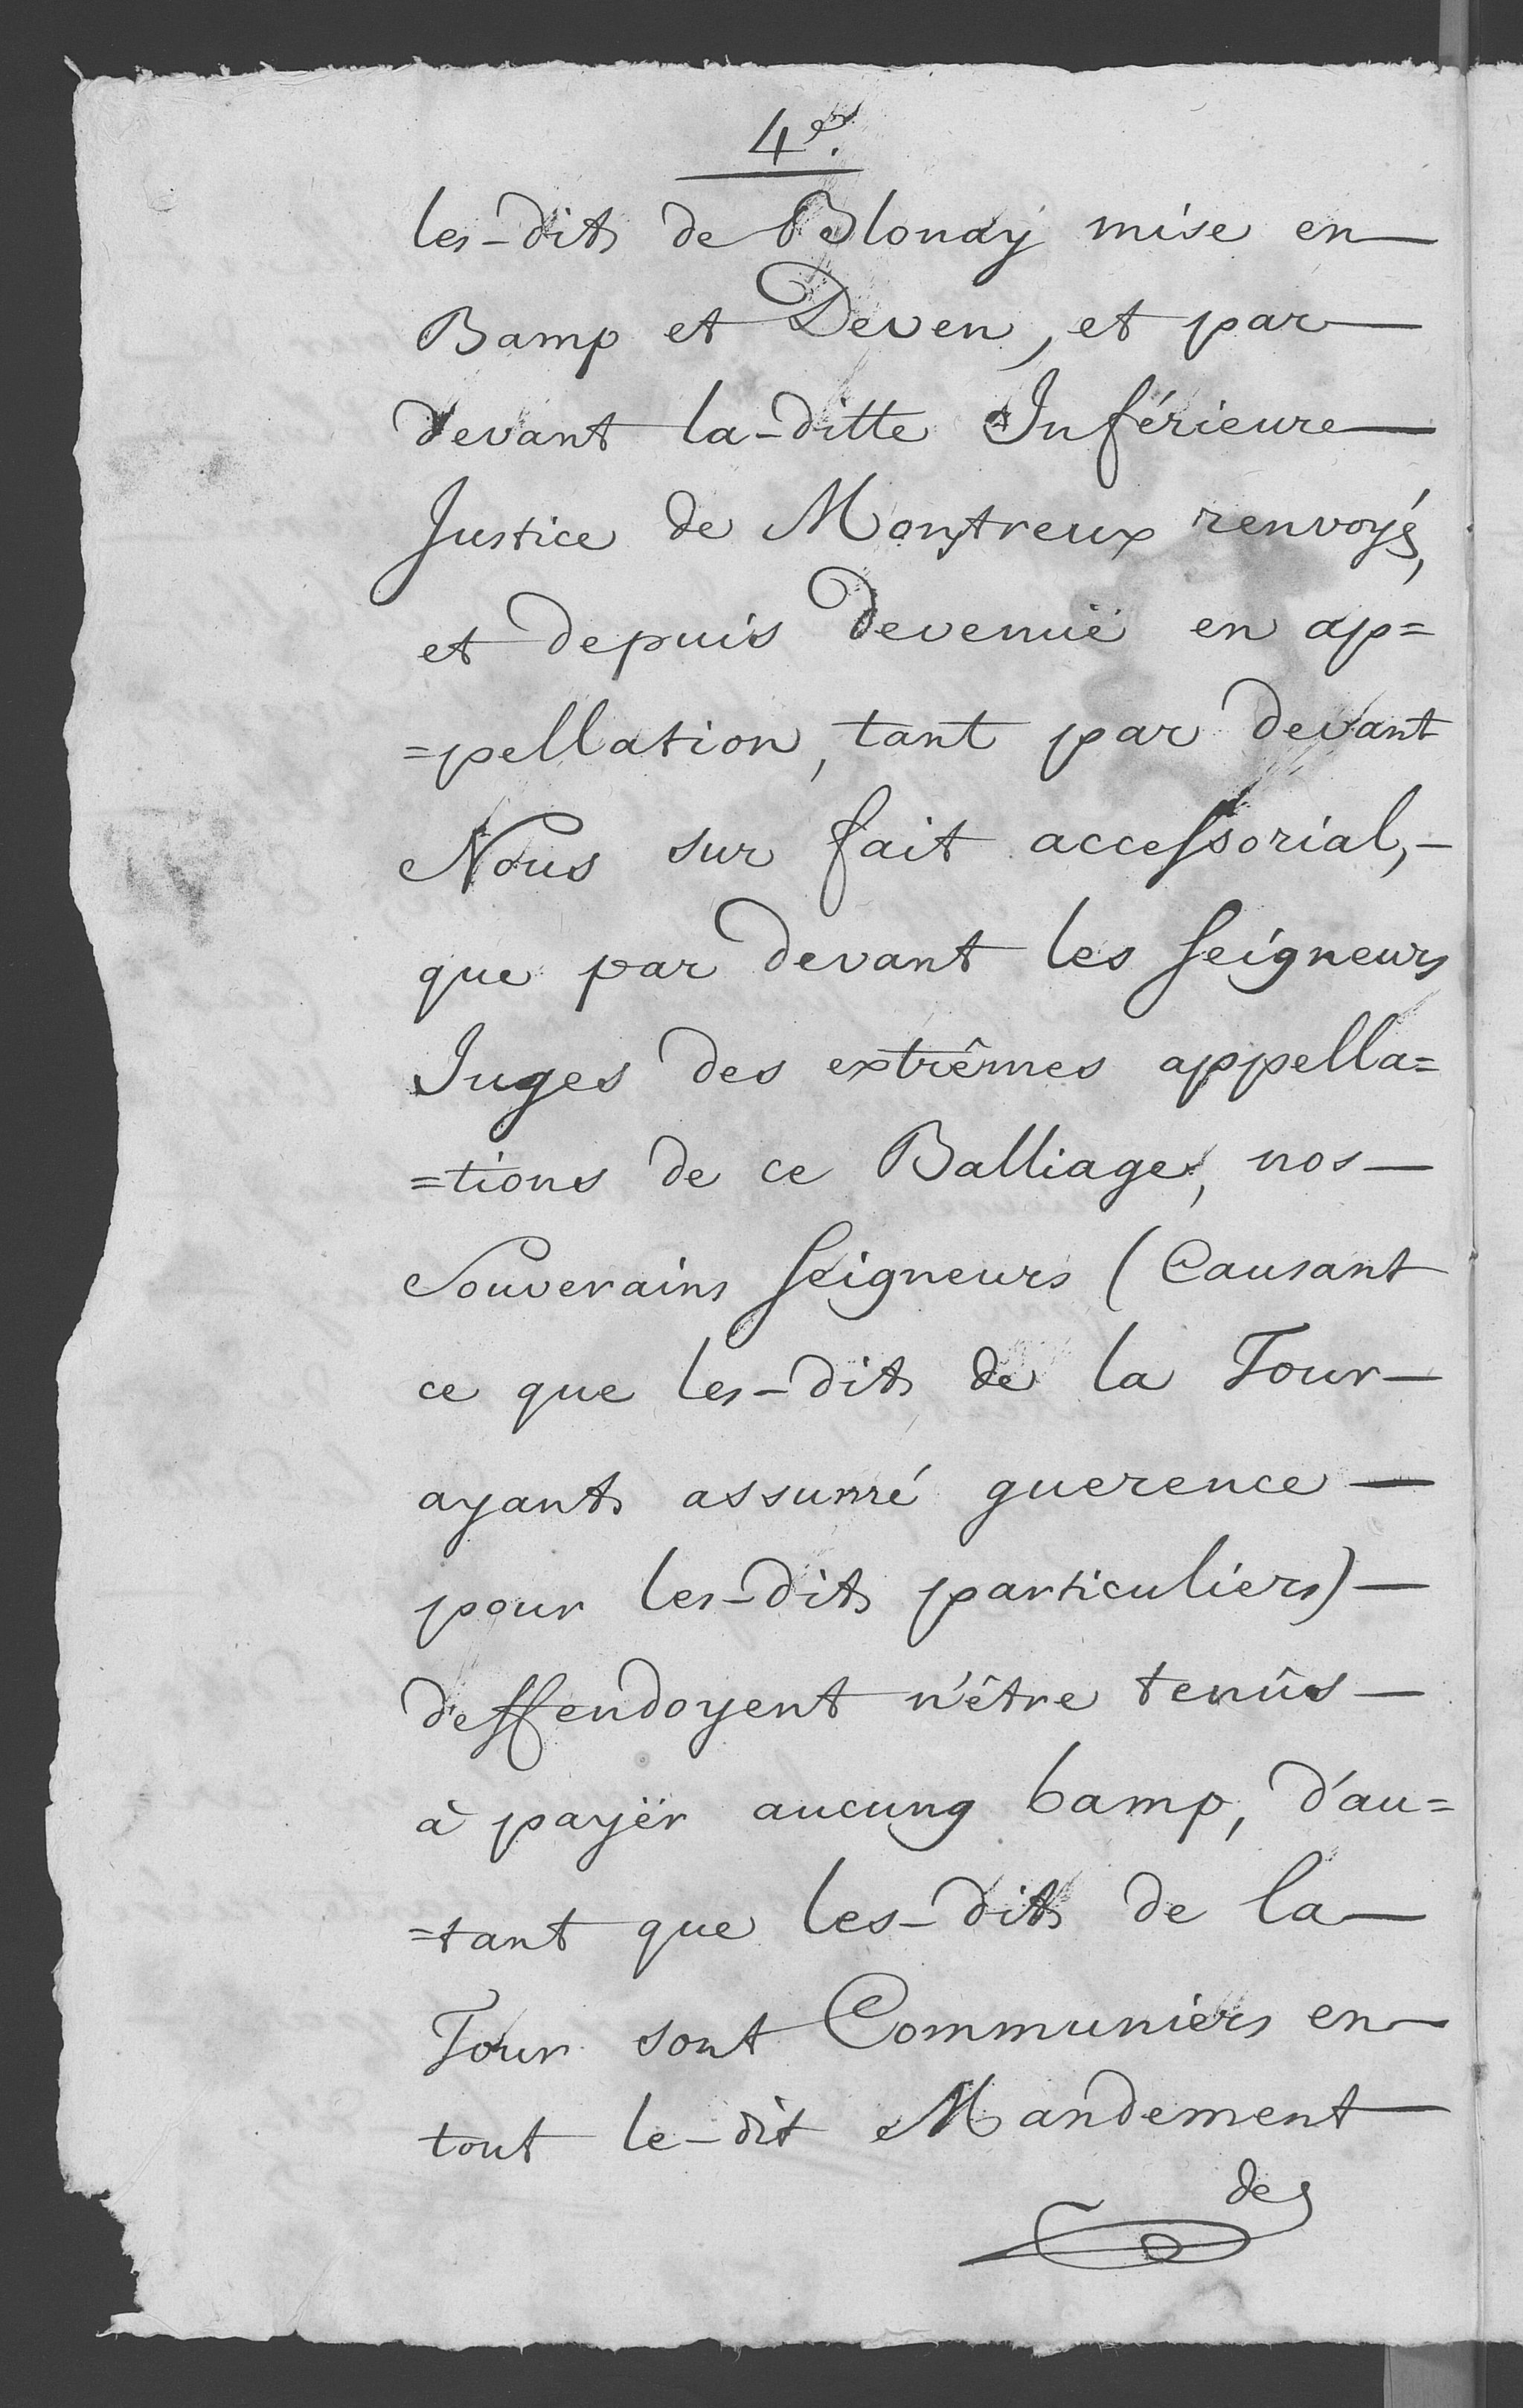 4.e
les-dits de Blonaÿ mise en
Bamp et Deven, et par
devant la-ditte Inférieure
Justice de Monstreux renvoyé,
et depuis devenuë en ap=
=pellation, tant par devant
Nous sur fait accessorial,
que par devant les Seigneurs
Juges des extrêmes appella=
=tions de ce Balliage, nos
Souverains Seigneurs (Causant
ce que les-dits de la Tour
ayants assumé guerence
pour les-dits particuliers)
deffendoyent n'être tenûs
à payër aucung bamp, d'au=
=tant que les-dits de la
Tour sont Communiers en
tout le-dit Mandement
de